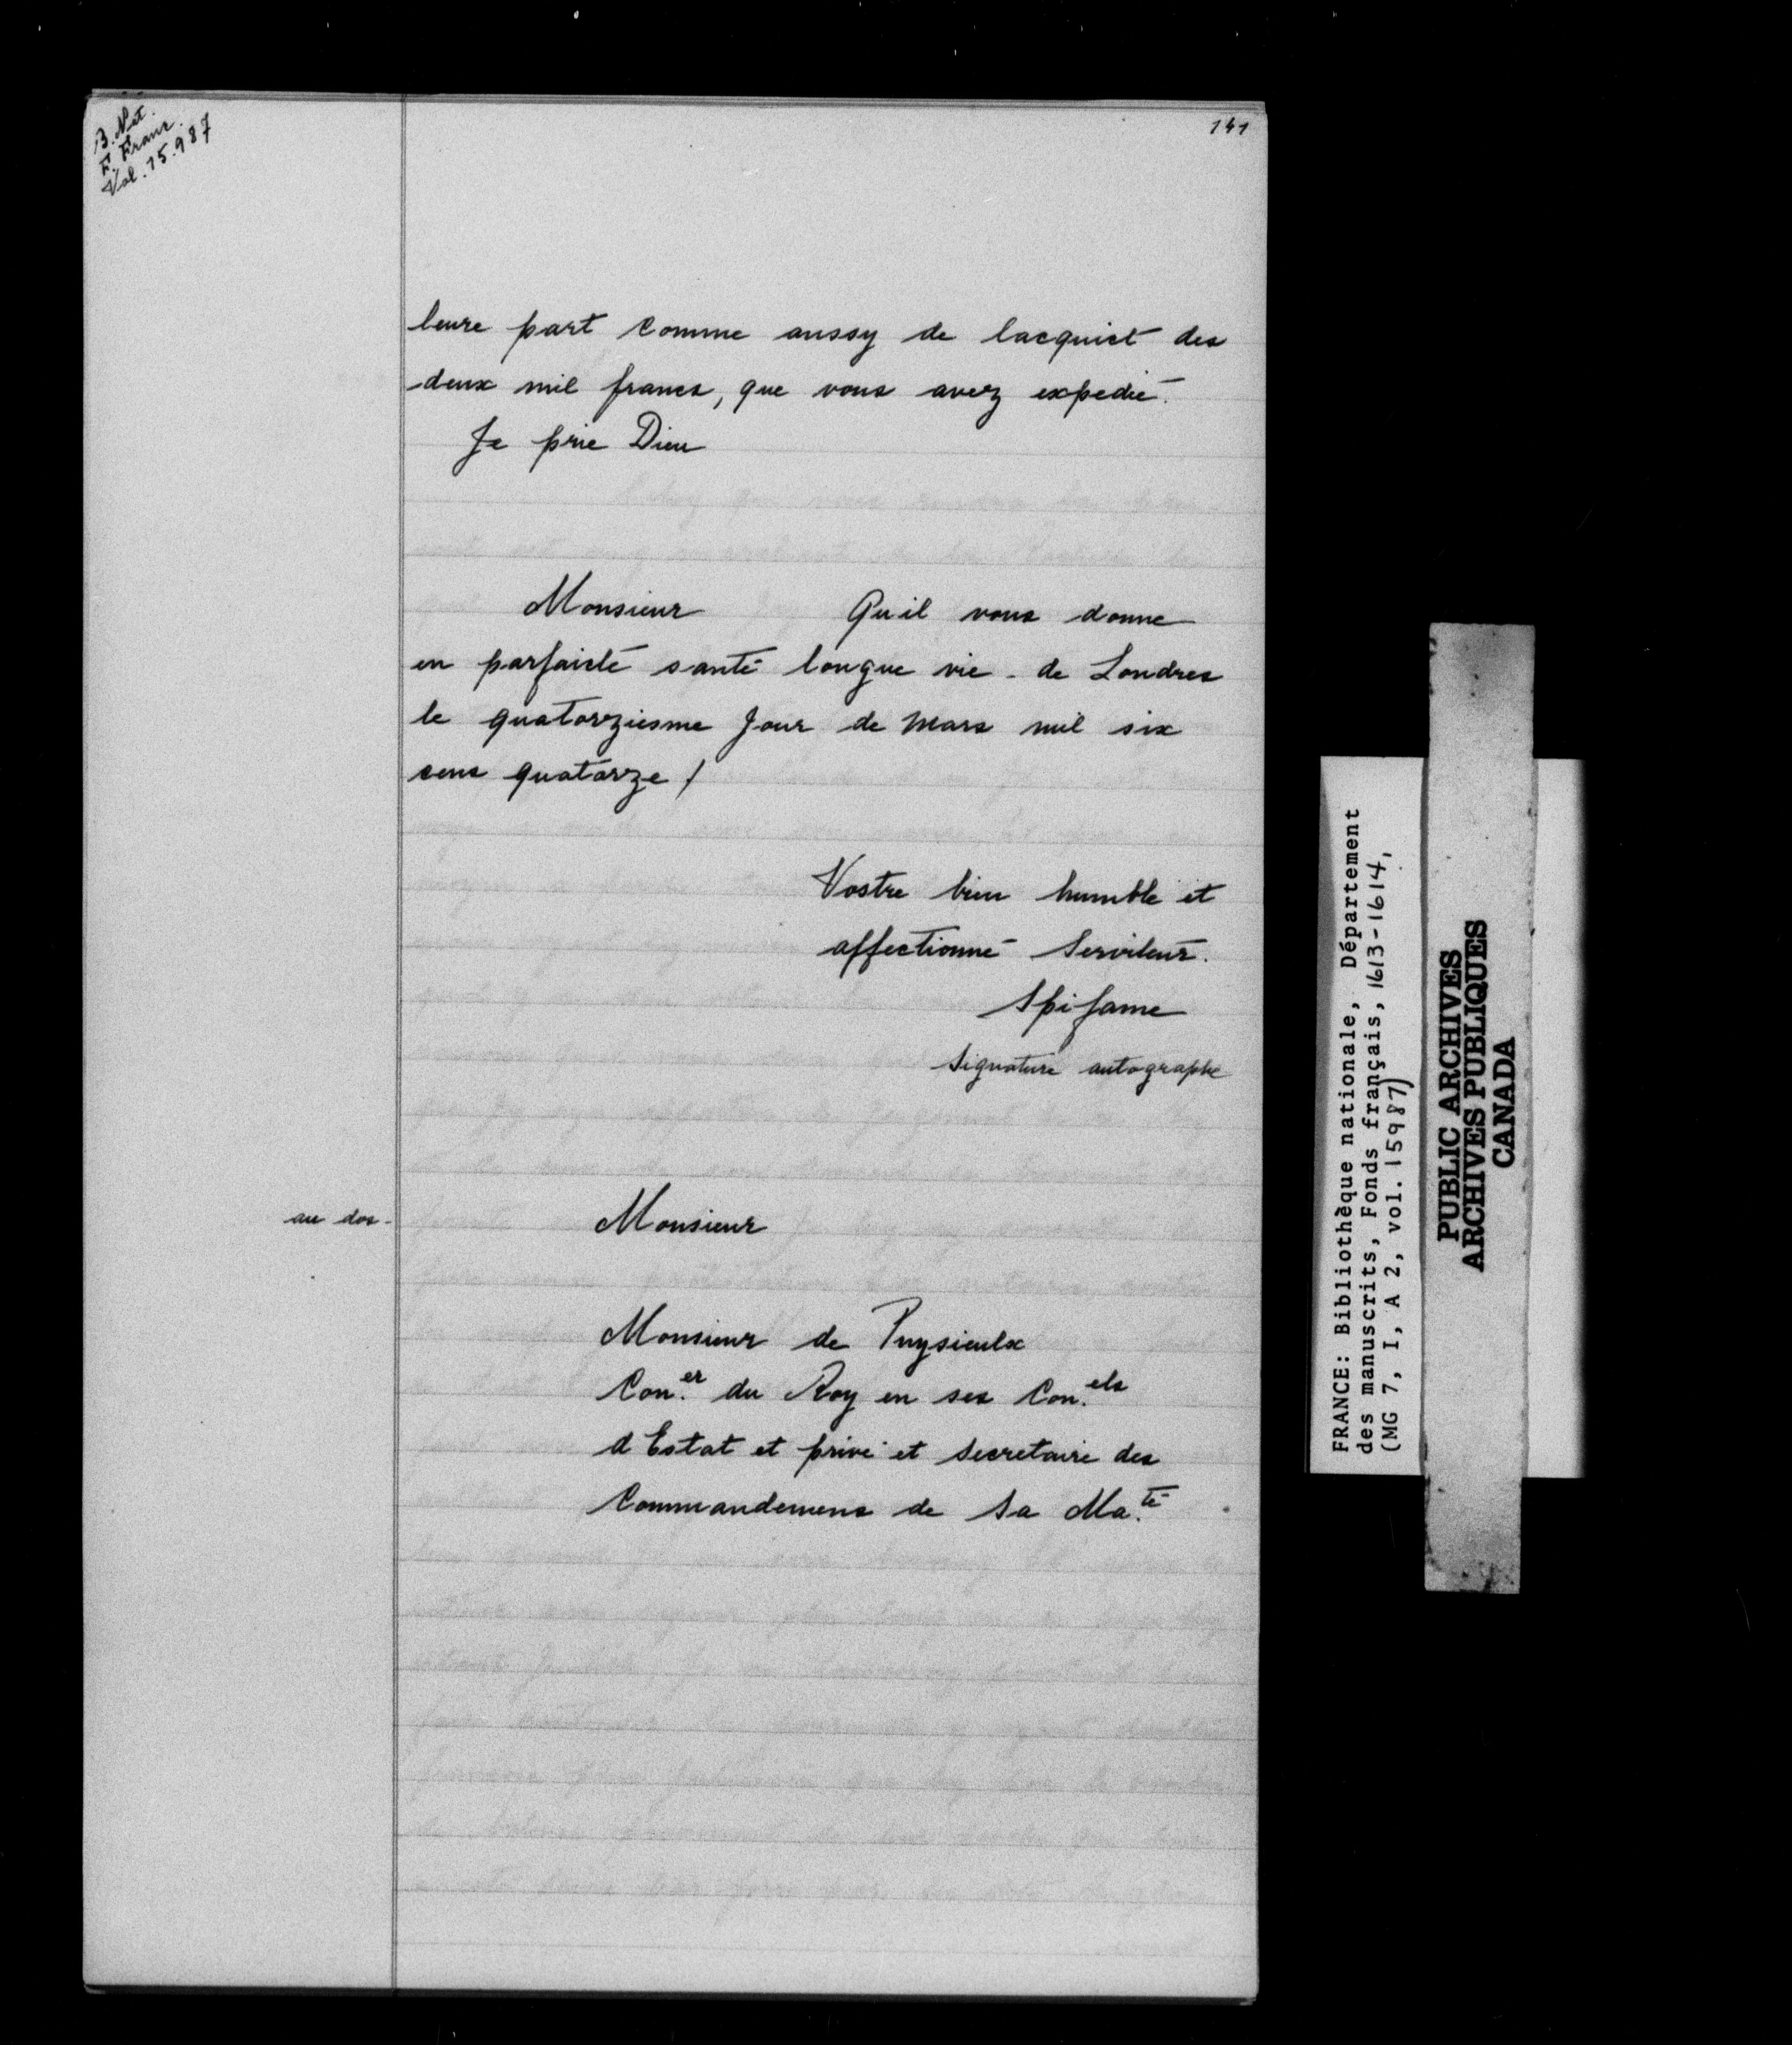 B. Nat.
F. Franç.
Vol. 15.987
141
leure part comme aussy de lacquict des
deux mil francs, que vous avez expedié.
Je prie Dieu
Monsieur Quil vous donne
en parfaicte santé longue vie - de Londres
le quatorziesme Jour de Mars mil six
cens quatorze /
Vostre bien humble et
affectionné Serviteur.
Spifame
Signature autographe
au dos - Monsieur
Monsieur de Puysieulx
Con.er du Roy en ses Con.els
d'Estat et privé et Secretaire des
Commandemens de Sa Ma.té
FRANCE: Bibliothèque nationale, Département
des manuscrits, Fonds français, 1613-1614,
(MG 7, I, A 2, vol. 15987)
PUBLIC ARCHIVES
ARCHIVES PUBLIQUES
CANADA